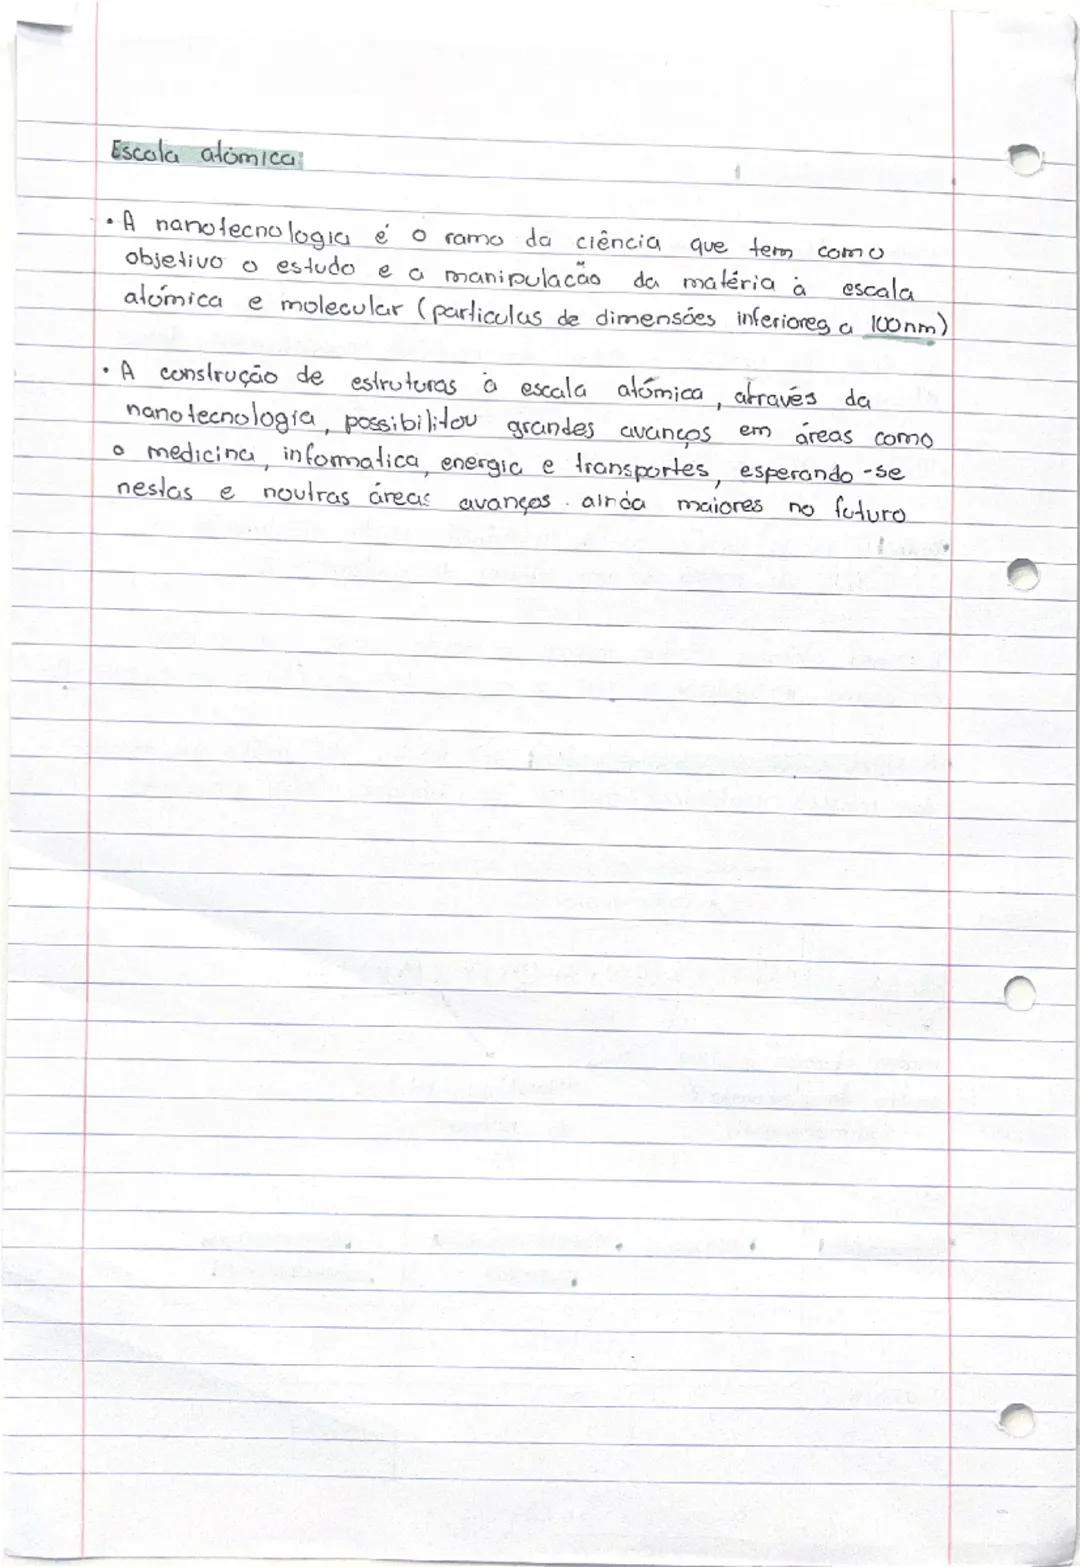 Escala atómica:
• A nanotecnologia é o ramo da ciência que tem como
objetivo o estudo e a manipulacão da matéria à escala
atómica e molecular (particulas de dimensões inferiores a 100nm)
• A construção de estruturas à escala atómica, através da
nanotecnologia, possibilitou grandes avanços em áreas como
a medicina, informatica, energia e transportes, esperando-se
nestas e noutras áreas avanços ainda maiores no futuro